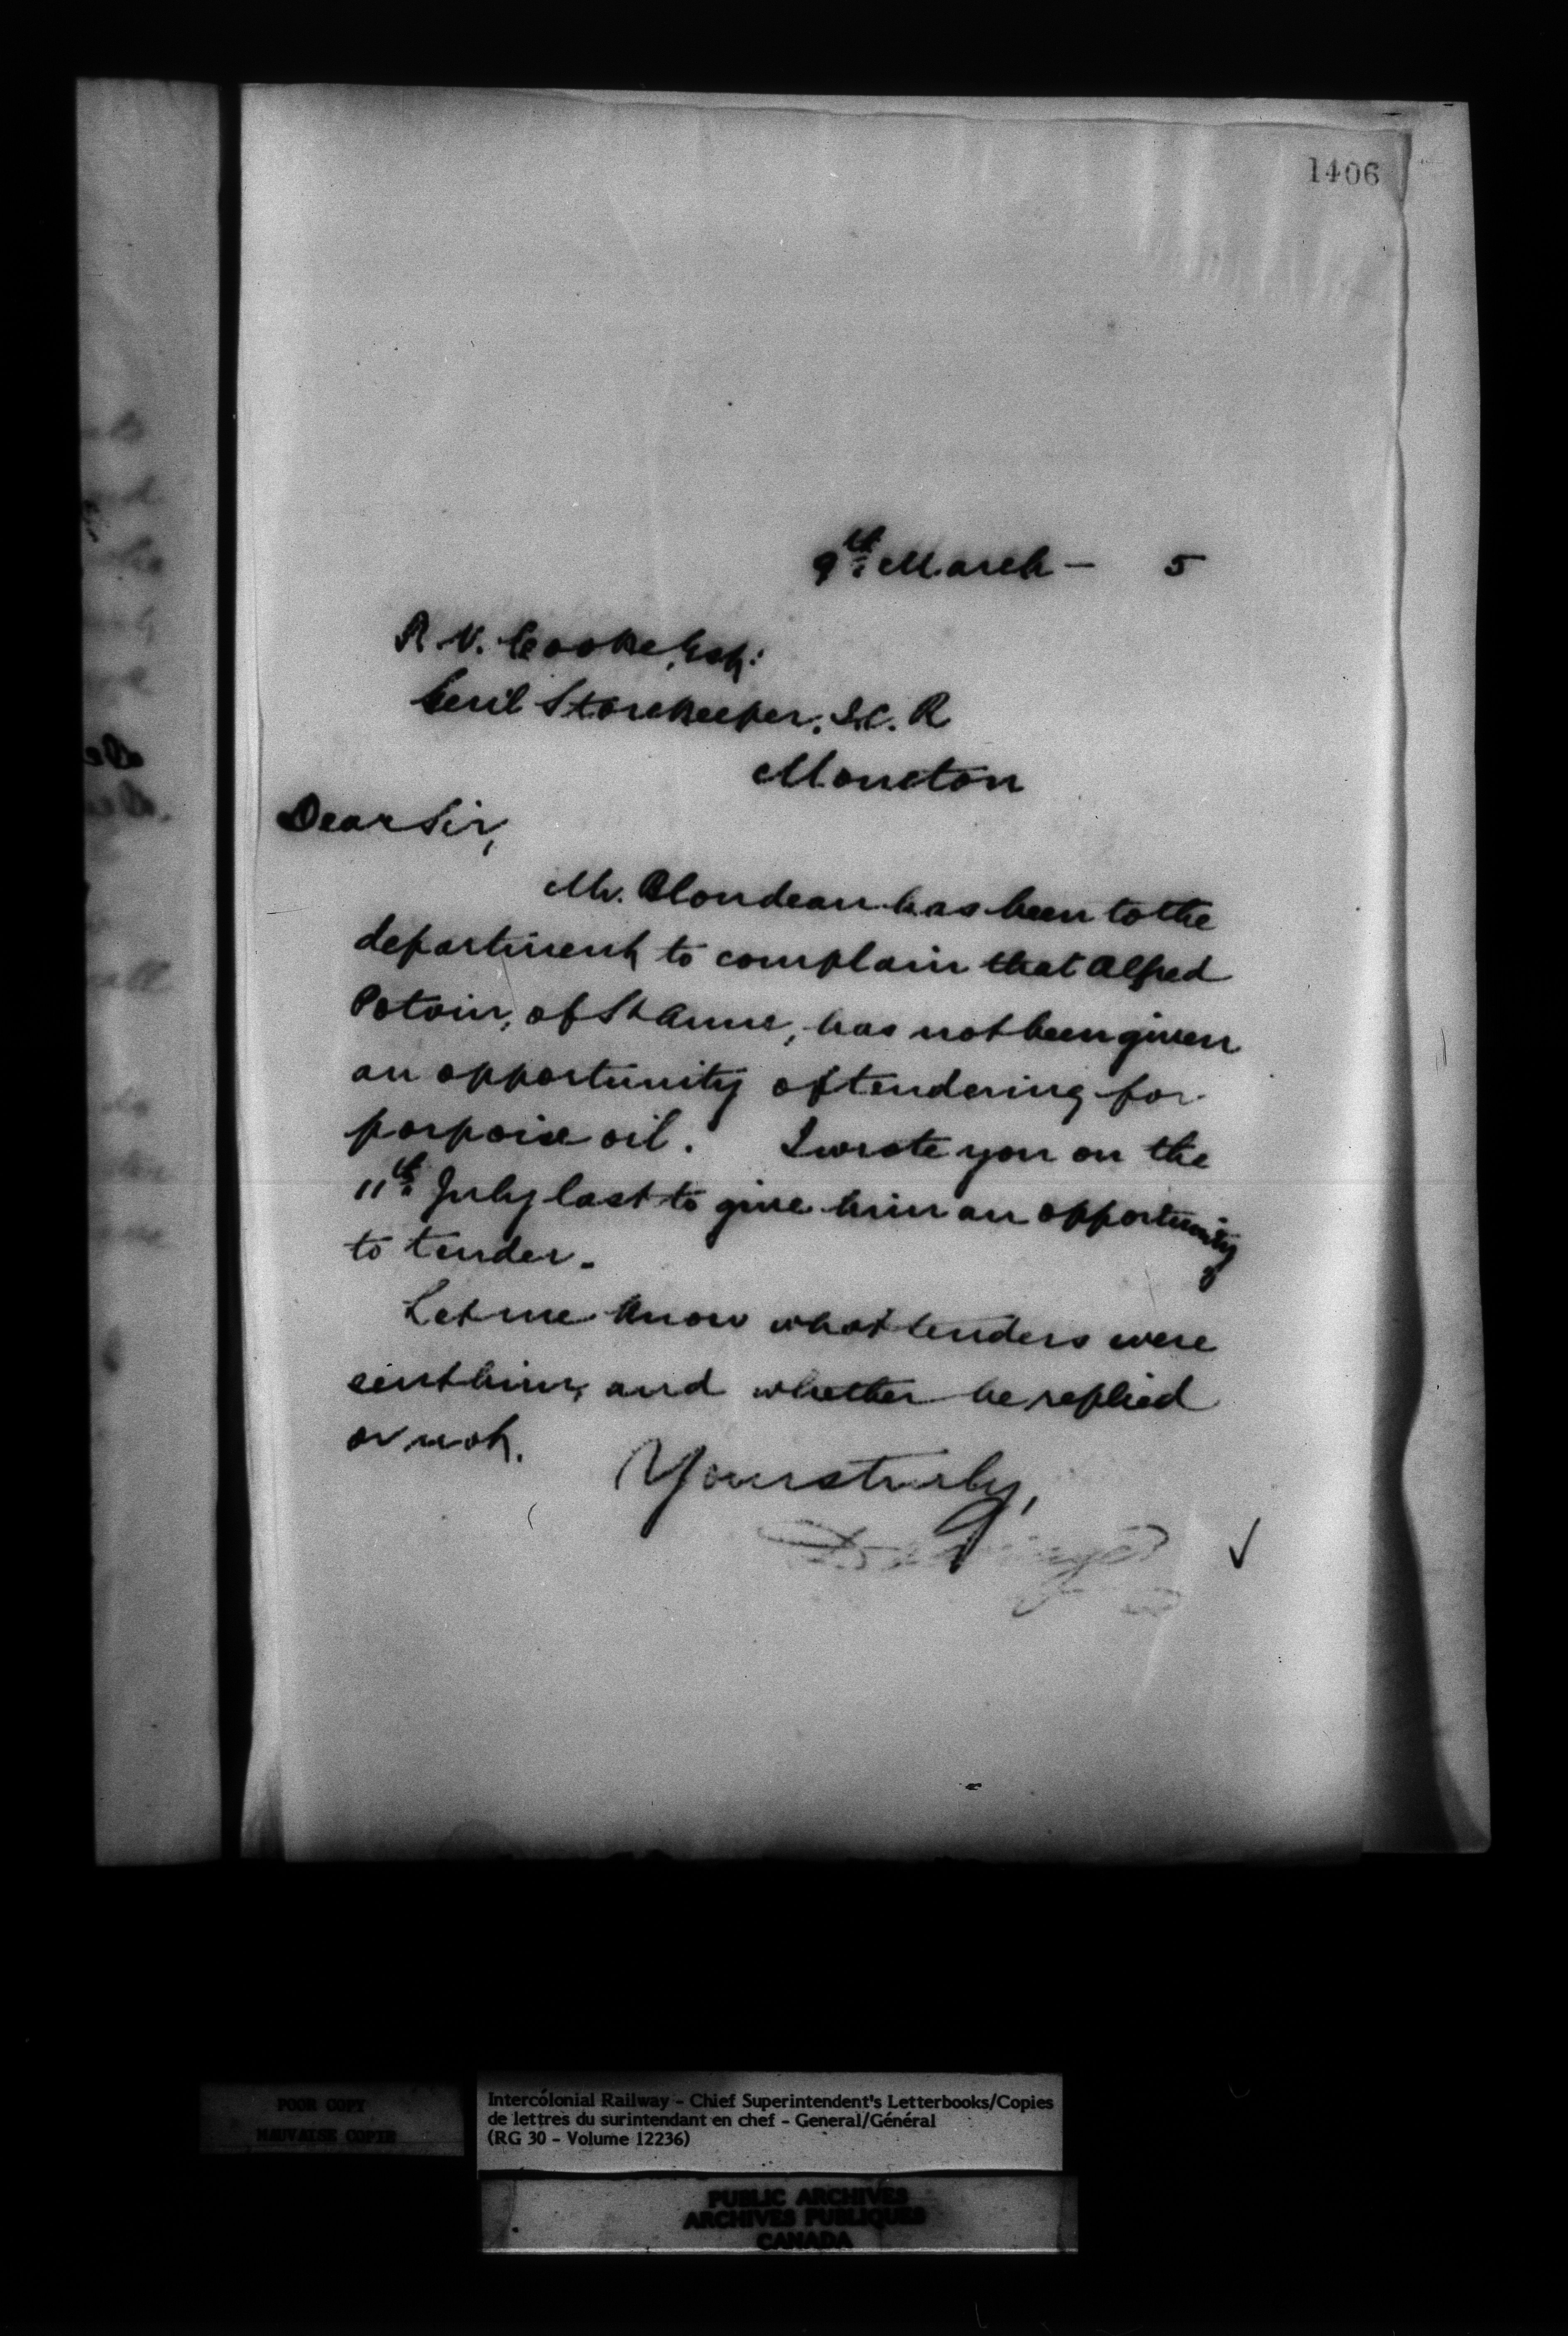 1406
9th March - 5
R. V. Cooke, Esq:
Gen'l Storekeeper, I.C.R
Moncton
Dear Sir,
Mr. Blondeau has been to the
department to complain that Alfred
Potvin, of St Anne, has not been given
an opportunity of tendering for
porpoise oil. I wrote you on the
11th July last to give him an opportunity
to tender.
Let me know what tenders were
sent him, and whether he replied
or not.
Yours truly,
POOR COPY
MAUVAISE COPIE
Intercolonial Railway - Chief Superintendent's Letterbooks/Copies
de lettres du surintendant en chef - General/Général
(RG 30 - Volume 12236)
PUBLIC ARCHIVES
ARCHIVES PUBLIQUES
CANADA